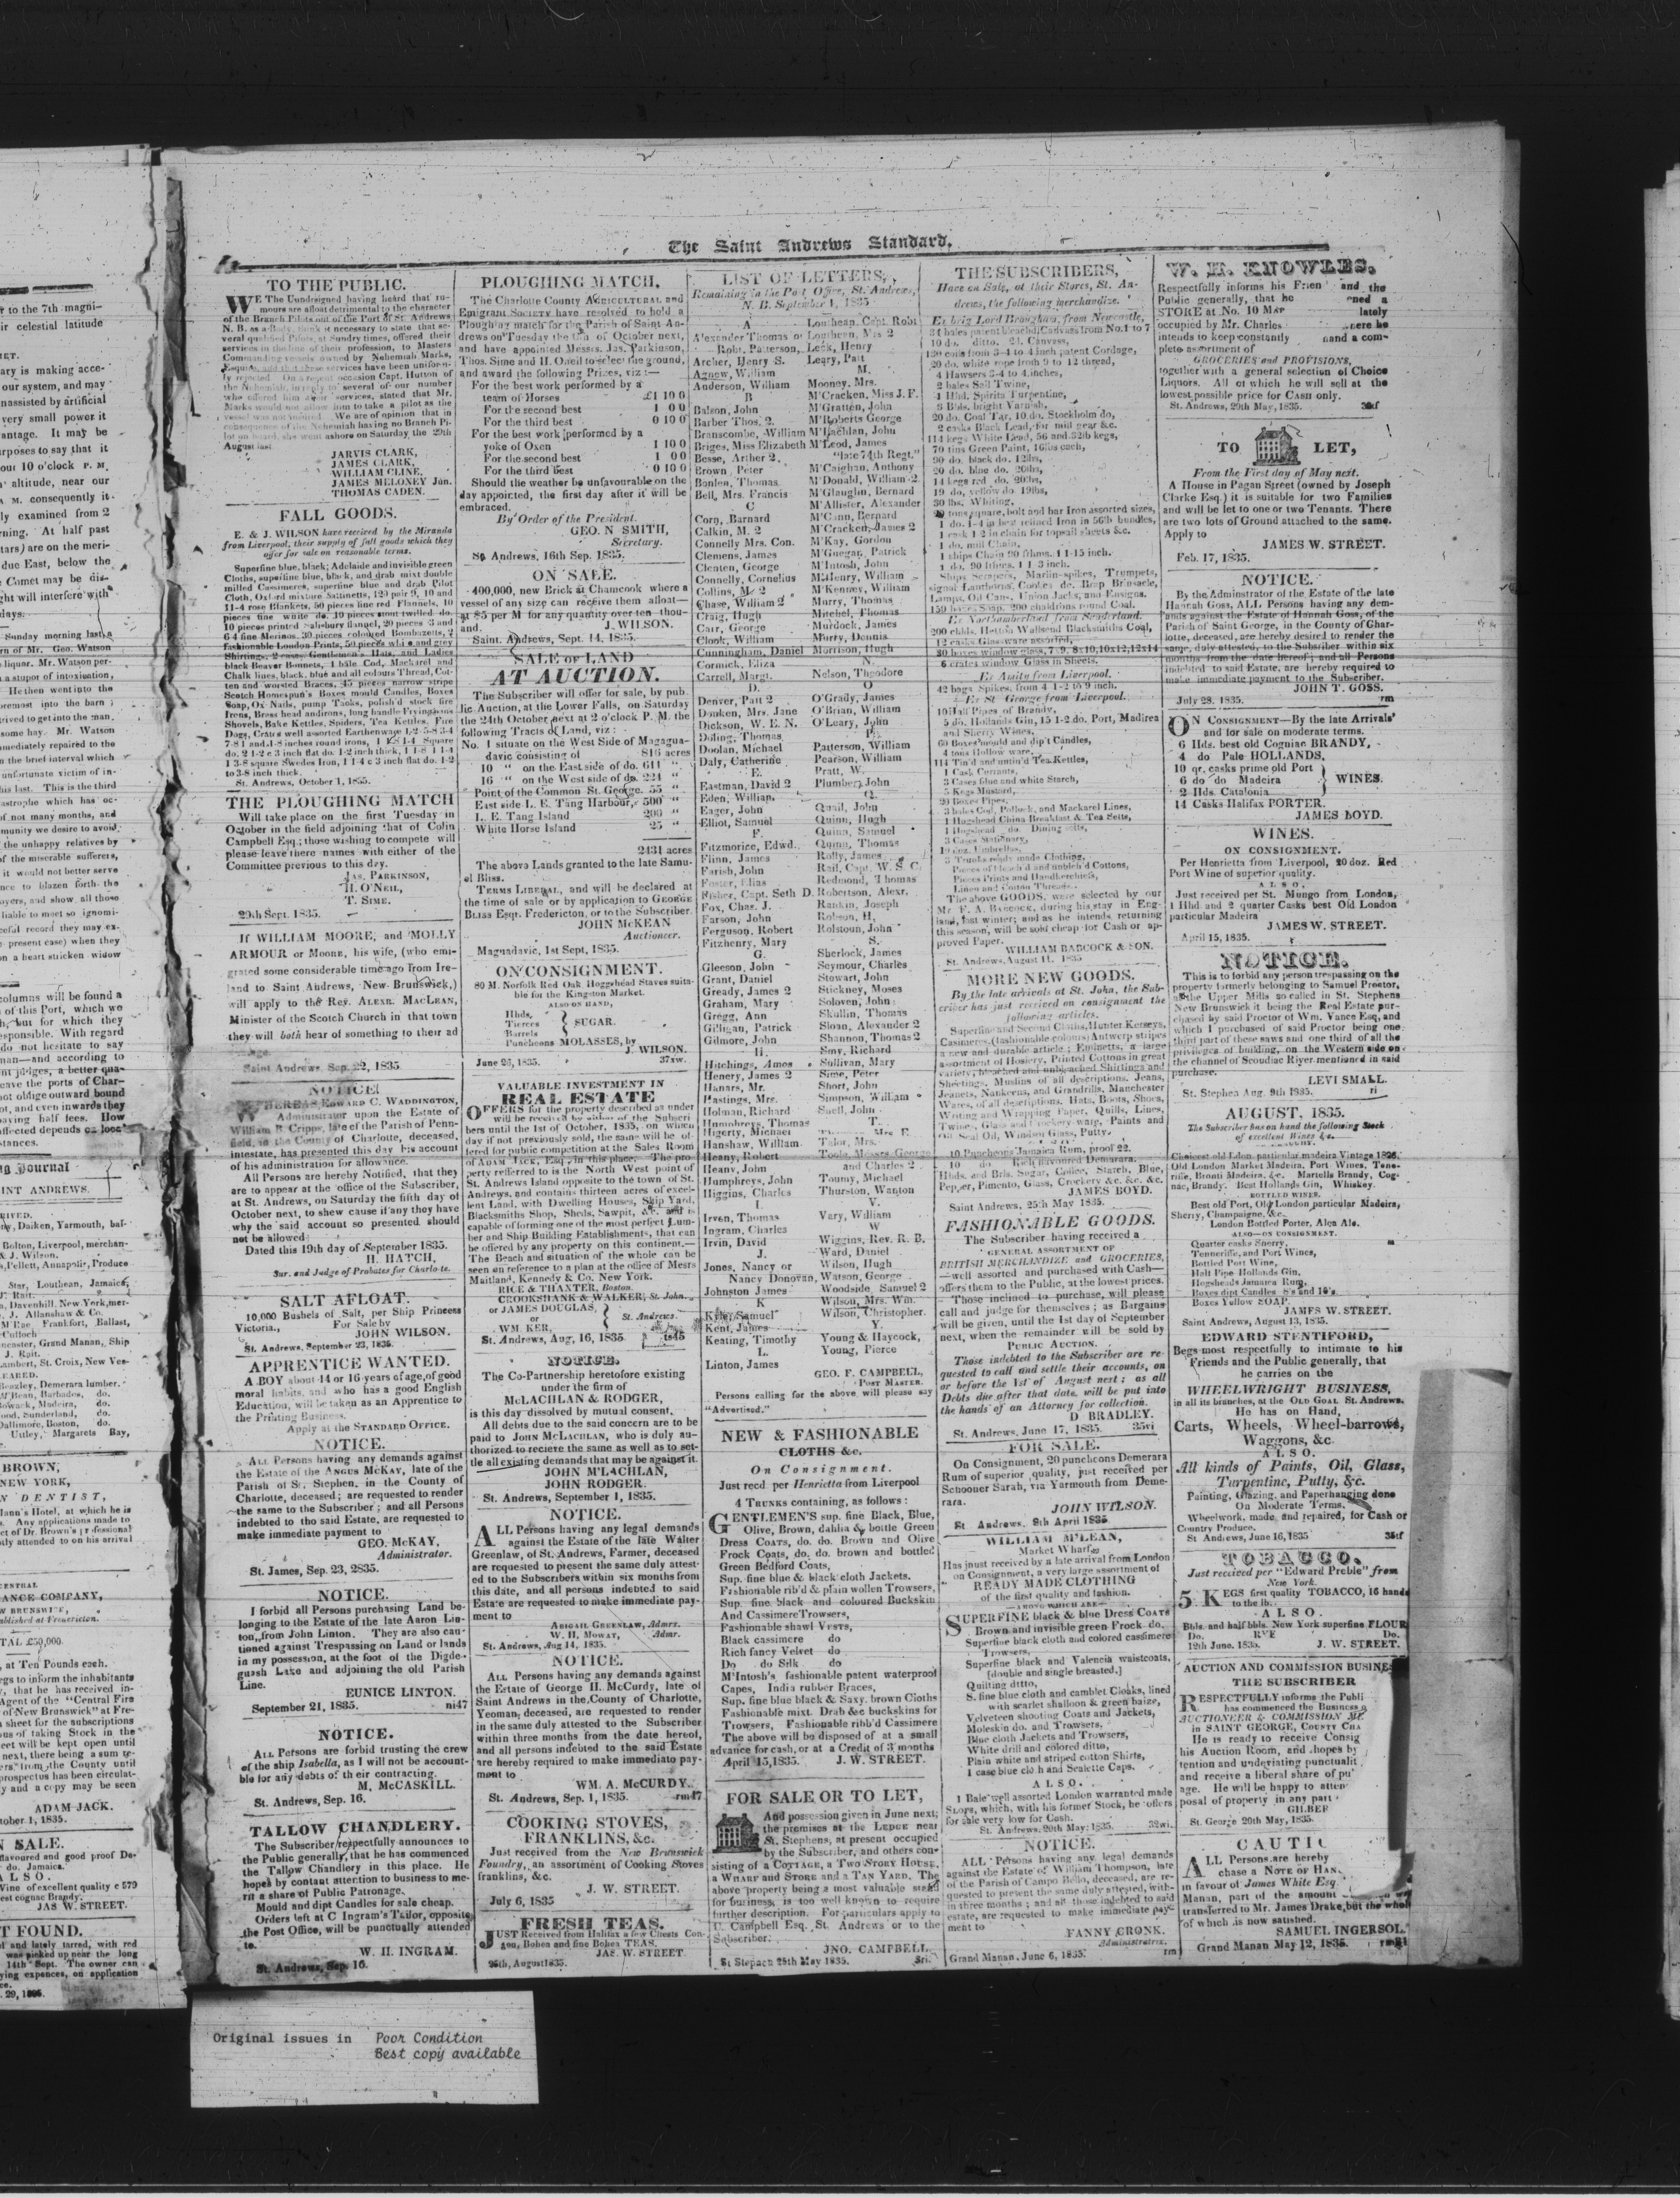 The Saint Andrews Standard.
TO THE PUBLIC.
WE The Undesigned having heard that ru-
mours are afloat detrimental to the character
of the Branch Pilots out of the Port of St. Andrews
N. B. as a Body, think it necessary to state that se-
veral qualified Pilots, at sundry times, offered their
services in the line of their profession, to Masters
Commanding vessels owned by Nehemiah Marks,
Esquire, and that these services have been uniform-
ly rejected On a recent occasion Capt. Hutton of
the Nehemiah, in reply to several of our number
who offered him their services, stated that Mr.
Marks would not allow him to take a pilot as the
vessel was not insured. We are of opinion that in
consequence of the Nehemiah having no Branch Pi-
lot on board, she went ashore on Saturday the 29th
August last
JARVIS CLARK,
JAMES CLARK,
WILLIAM CLINE,
JAMES MELONEY Jun.
THOMAS CADEN.
FALL GOODS.
E. & J. WILSON have received by the Miranda
from Liverpool, their supply of fall goods which they
offer for sale on reasonable terms.
Superfine blue, black; Adelaide and invisible green
Cloths, superfine blue, black, and drab mixt double
milled Cassimeres, superfine blue and drab Pilot
Cloth, Oxford mixture Sattinetts, 120 pair 9, 10 and
11-4 rose Blankets, 50 pieces fine red Flannels, 10
pieces fine white do. 10 pieces most twilled do.
10 pieces printed Salisbury flannel, 20 pieces 3 and
6 4 fine Merinos, 30 pieces coloured Bombazetts, 2
fashionable London Prints, 50 pieces white and grey
Shirtings, 2 cases Gentlemen's Hats, and Ladies
black Beaver Bonnets, 1 bale Cod, Mackarel and
Chalk lines, black, blue and all colours Thread, Cot-
ten and worsted Braces, 45 pieces narrow stripe
Scotch Homespun's Boxes mould Candles, Boxes
Soap, Ox Nails, pump Tacks, polish'd stock fire
Irons, Brass head andirons, long handle Fryingpans
Shovels, Bake Kettles, Spiders, Tea Kettles, Fire
Dogs, Crates well assorted Earthenware
St. Andrews, October 1, 1835.
THE PLOUGHING MATCH
Will take place on the first Tuesday in
October in the field adjoining that of Colin
Campbell Esq.; those washing to compete will
please leave there names with either of the
Committee previous to this day.
JAS. PARKINSON,
H. O'NEIL,
T. SIME.
29th Sept. 1835.
If WILLIAM MOORE, and MOLLY
ARMOUR or MOORE, his wife, (who emi-
grated some considerable time ago from Ire-
land to Saint Andrews, New Brunswick,)
will apply to the Rev. ALEXR. MACLEAN,
Minister of the Scotch Church in that town
they will both hear of something to their ad
Saint Andrews Sep. 22, 1835.
NOTICE!
WHEREAS, EDWARD C. WADDINGTON,
Administrator upon the Estate of
William R. Cripps, late of the Parish of Penn-
field, in the County of Charlotte, deceased,
intestate, has presented this day his account
of his administration for allowance.
All Persons are hereby Notified, that they
are to appear at the office of the Subscriber,
at St. Andrews, on Saturday the fifth day of
October next, to shew cause if any they have
why the said account so presented should
not be allowed.
Dated this 19th day of September 1835.
H. HATCH,
Sur. and Judge of Probates for Charlotte.
SALT AFLOAT.
10,000 Bushels of Salt, per Ship Princess
Victoria, For Sale by
JOHN WILSON.
St. Andrews, September 23, 1835.
APPRENTICE WANTED.
A BOY about 14 or 16 years of age, of good
moral habits, and who has a good English
Education, will be taken as an Apprentice to
the Printing Business.
Apply at the STANDARD OFFICE.
NOTICE.
ALL Persons having any demands against
the Estate of the ANGUS MCKAY, late of the
Parish of St. Stephen, in the County of
Charlotte, deceased; are requested to render
the same to the Subscriber; and all Persons
indebted to tho said Estate, are requested to
make immediate payment to
GEO. McKAY,
Administrator.
St. James, Sep. 23, 2835.
NOTICE.
I forbid all Persons purchasing Land be-
longing to the Estate of the late Aaron Lin-
ton, from John Linton. They are also cau-
tioned against Trespassing on Land or lands
in my possession, at the foot of the Digde-
guash Lake and adjoining the old Parish
Line.
EUNICE LINTON.
September 21, 1835. ni47
NOTICE.
ALL Persons are forbid trusting the crew
of the ship Isabella, as I will not be account-
ble for any debts of their contracting.
M. McCASKILL.
St. Andrews, Sep. 16.
TALLOW CHANDLERY.
The Subscriber respectfully announces to
the Public generally, that he has commenced
the Tallow Chandlery in this place. He
hopes by contant attention to business to me-
rit a share of Public Patronage.
Mould and dipt Candles for sale cheap.
Orders left at C Ingram's Tailor, opposite
the Post Office, will be punctually attended
to.
W. H. INGRAM.
St. Andrews, Sep. 16.
PLOUGHING MATCH.
The Charlotte County AGRICULTURAL and
Emigrant SOCIETY have resolved to hold a
Ploughing match for the Parish of Saint An-
drews on Tuesday the 6th of October next,
and have appointed Messrs. Jas. Parkinson,
Thos. Sime and H. Oneil to select the ground,
and award the following Prizes, viz:—
For the best work performed by a
team of Horses £1 10 0
For the second best 1 0 0
For the third best 0 10 0
For the best work performed by a
yoke of Oxen 1 10 0
For the second best 1 0 0
For the third best 0 10 0
Should the weather be unfavourable on the
day appointed, the first day after it will be
embraced.
By Order of the President.
GEO. N SMITH,
Secretary.
St. Andrews, 16th Sep. 1835.
ON SALE.
400,000, new Brick at Chamcook where a
vessel of any size can receive them afloat—
at $5 per M for any quantity over ten thou-
and. J. WILSON.
Saint. Andrews, Sept. 14, 1835.
SALE OF LAND
AT AUCTION.
The Subscriber will offer for sale, by pub.
lic Auction, at the Lower Falls, on Saturday
the 24th October next at 2 o'clock P. M. the
following Tracts of Land, viz:
No. 1 situate on the West Side of Magagua-
davic consisting of 816 acres
10 " on the East side of do. 611 "
16 " on the West side of do. 224 "
Point of the Common St. George. 55 "
East side L. E. Tang Harbour, 500 "
L. E. Tang Island 200 "
White Horse Island 25 "
2431 acres
The above Lands granted to the late Samu-
el Bliss.
TERMS LIBERAL, and will be declared at
the time of sale or by application to GEORGE
BLISS Esqr. Fredericton, or to the Subscriber.
JOHN McKEAN
Auctioneer.
Magaudavic, 1st Sept, 1835.
ON CONSIGNMENT.
80 M. Norfolk Red Oak Hoggshead Staves suita-
ble for the Kingston Market.
ALSO ON HAND,
Hhds,
Tierces
Barrels
SUGAR.
Puncheons MOLASSES, by
J. WILSON.
June 26, 1835. 37xw.
VALUABLE INVESTMENT IN
REAL ESTATE
OFFERS for the property described as under
will be received by either of the Subscri
bers until the 1st of October, 1835, on which
day if not previously sold, the same will be of-
fered for public competition at the Sales Room
of ADAM JACK, Esq. in this place. The pro-
perty referred to is the North West point of
St. Andrews Island opposite to the town of St.
Andrews, and contains thirteen acres of excel-
lent Land, with Dwelling Houses, Ship Yard,
Blacksmiths Shop, Sheds, Sawpit, &c. and is
capable of forming one of the most perfect Lum-
ber and Ship Building Establishments, that can
be offered by any property on this continent.—
The Beach and situation of the whole can be
seen on reference to a plan at the office of Mesrs
Maitland, Kennedy & Co. New York.
RICE & THAXTER, Boston.
CROOKSHANK & WALKER, St. John.
or JAMES DOUGLAS,
or
WM KER, St. Andrews.
St. Andrews, Aug, 16, 1835.
NOTICE.
The Co-Partnership heretofore existing
under the firm of
McLACHLAN & RODGER,
is this day dissolved by mutual consent.
All debts due to the said concern are to be
paid to JOHN MCLACHLAN, who is duly au-
thorized to recieve the same as well as to set-
tle all existing demands that may be against it.
JOHN M'LACHLAN,
JOHN RODGER.
St. Andrews, September 1, 1835.
NOTICE.
ALL Persons having any legal demands
against the Estate of the late Walter
Greenlaw, of St. Andrews, Farmer, deceased
are requested to present the same duly attest-
ed to the Subscribers within six months from
this date, and all persons indebted to said
Estate are requested to make immediate pay-
ment to
ABIGAIL GREENLAW, Admrx.
W. H. MOWAT, Admr.
St. Andrews, Aug 14, 1835.
NOTICE.
ALL Persons having any demands against
the Estate of George H. McCurdy, late of
Saint Andrews in the County of Charlotte,
Yeoman, deceased, are requested to render
in the same duly attested to the Subscriber
within three months from the date hereof,
and all persons indebted to the said Estate
are hereby required to make immediate pay-
ment to
WM. A. McCURDY.
St. Andrews, Sep. 1, 1835. rm47
COOKING STOVES,
FRANKLINS, &c.
Just received from the New Brunswick
Foundry, an assortment of Cooking Stoves
franklins, &c.
J. W. STREET.
July 6, 1835
FRESH TEAS.
JUST Received from Halifax a few Chests Con-
gou, Bohea and fine Bohea TEAS.
JAS. W. STREET.
25th, August 1835.
LIST OF LETTERS,
Remaining in the Post Office, St. Andrews,
N. B. September 1, 1835
A
Alexander Thomas or
Robt. Patterson,
Archer, Henry S.
Agnew, William
Anderson, William
B
Balson, John
Barber Thos. 2.
Branscombe, William
Briges, Miss Elizabeth
Besse, Arther 2.
Brown, Peter
Bonlen, Thomas
Bell, Mrs. Francis
C
Corn, Barnard
Calkin, M. 2
Connelly Mrs. Con.
Clemens, James
Clenten, George
Connelly, Cornelius
Collins, M. 2
Chase, William 2
Craig, Hugh
Carr, George
Clook, William
Cunningham, Daniel
Cormick, Eliza
Carrell, Margt.
D.
Denver, Patt 2
Donken, Mrs. Jane
Dickson, W. E. N.
Doling, Thomas
Doolan, Michael
Daly, Catherine
E.
Eastman, David 2
Eden, William
Eager, John
Elliot, Samuel
F.
Fitzmorice, Edwd.
Flinn, James
Farish, John
Foster, Elias
Fisher, Capt. Seth D.
Fox, Chas. J.
Farson, John
Ferguson, Robert
Fitzhenry, Mary
G.
Gleeson, John
Grant, Daniel
Gready, James 2
Graham, Mary
Gregg, Ann
Gilligan, Patrick
Gilmore, John
H.
Hitchings, Ames
Henery, James 2
Hanars, Mr.
Hastings, Mrs.
Holman, Richard
Humphreys, Thomas
Higerty, Michael
Hanshaw, William
Heany, Robert
Heany, John
Humphreys, John
Higgins, Charles
I.
Irven, Thomas
Ingram, Charles
Irvin, David
J.
Jones, Nancy or
Nancy Donovan,
Johnston James
K
Kyle, Samuel
Kent, James
Keating, Timothy
L.
Linton, James
Louthean, Capt. Robt
Louthean, Mrs 2
Leck, Henry
Leary, Patt
M.
Mooney, Mrs.
M'Cracken, Miss J. F.
M'Gratten, John
M'Roberts George
M'Lachlan, John
M'Leod, James
"late 74th Regt."
M'Caighan, Anthony
M'Donald, William 2
M'Glauglin, Bernard
M'Allister, Alexander
M'Cann, Bernard
M'Cracken, James 2
M'Kay, Gordon
M'Guegan, Patrick
M'Intosh, John
M'Henry, William
M'Kenney, William
Murry, Thomas
Mitchel, Thomas
Murdock, James
Morty, Dennis
Morrison, Hugh
N.
Nelson, Thodore
O
O'Grady, James
O'Brian, William
O'Leary, John
P.
Patterson, William
Pearson, William
Pratt, W.
Plumber, John
Q.
Quail, John
Quinn, Hugh
Quinn, Samuel
Quinn, Thomas
Rolly, James
Rail, Capt. W. S. C.
Redmond, Thomas
Robertson, Alexr.
Rankin, Joseph
Robson, H.
Rolstoun, John
S.
Sherlock, James
Seymour, Charles
Stowart, John
Stickney, Moses
Soloven, John
Skullin, Thomas
Sloan, Alexander 2
Shannon, Thomas 2
Smy, Richard
Sullivan, Mary
Sime, Peter
Short, John
Simpson, William
Snell, John
T.
Talor, Mrs.
Toole, Messes. George
and Charles 2
Toumy, Michael
Thurston, Wanton
V.
Vary, William
W
Wiggins, Rev. R. B.
Ward, Daniel
Wilson, Hugh
Watson, George
Woodside Samuel 2
Wilson, Mrs. Wm.
Wilson, Christopher.
Y.
Young & Haycock,
Young, Pierce
GEO. F. CAMPBELL,
POST MASTER.
Persons calling for the above will please say
"Advertised."
NEW & FASHIONABLE
CLOTHS &c.
On Consignment.
Just recd per Henrietta from Liverpool
4 TRUNKS containing, as follows:
GENTLEMEN'S sup. fine Black, Blue,
Olive, Brown, dahlia & bottle Green
Dress COATS, do. do. Brown and Olive
Frock Coats, do. do. brown and bottled
Green Bedford Coats,
Sup. fine blue & black cloth Jackets.
Fashionable rib'd & plain wollen Trowsers,
Sup. fine black and coloured Buckskin
And Cassimere Trowsers,
Fashionable shawl VESTS,
Black cassimere do
Rich fancy Velvet do
Do do Silk do
M'Intosh's fashionable patent waterproof
Capes, India rubber Braces,
Sup. fine blue black & Saxy. brown Cloths
Fashionable mixt. Drab &c buckskins for
Trowsers, Fashionable ribb'd Cassimere
The above will be disposed of at a small
advance for cash, or at a Credit of 3 months
April 15, 1835. J. W. STREET.
FOR SALE OR TO LET,
And possession given in June next;
the premises at the LEDGE near
St. Stephens, at present occupied
by the Subscriber, and others con-
sisting of a COTTAGE, a TWO STORY HOUSE,
a WHARF and STORE and a TAN YARD. The
above property being a most valuable stand
for business, is too well known to require
further description. For particulars apply to
C. Campbell Esq. St. Andrews or to the
Subscriber.
JNO. CAMPBELL.
St Stepacn 25th May 1835. 5ri.
THE SUBSCRIBERS,
Have on Sale, at their Stores, St. An-
drews, the following merchandize.
Ex brig Lord Brougham, from Newcastle,
34 bales patent bleachd Canvass from No. 1 to 7
10 do. ditto. 2d. Canvass,
130 coils from 3-4 to 4 inch patent Cordage,
20 do. white rope from 9 to 12 thread,
4 Hawsers 3-4 to 4 inches,
2 bales Sail Twine,
4 Hhd. Spirits Turpentine,
6 Bbls. bright Varnish,
20 do. Coal Tar, 10 do. Stockholm do,
2 casks Black Lead, for mill gear &c.
114 kegs White Lead, 56 and 32lb kegs,
70 tins Green Paint, 16lbs each,
20 do. black do. 12lbs,
20 do. blue do. 20lbs,
14 kegs red do. 20lbs,
19 do. yellow do. 19lbs,
30 lbs. Whiting,
20 tons square, bolt and bar Iron assorted sizes,
1 do. 1-4 in best refined Iron in 56lb bundles,
1 cask 1 2 in chain for topsail sheets &c.
1 do. mill Chain,
1 ships Chain 90 fthos. 1 1-15 inch.
1 do. 90 fthos. 1 1 3 inch.
Ships Scrapers, Marlin-spikes, Trumpets,
signal Lanthorns, Cook's do. Bmp Brinsacle,
Lamps, Oil Cans, Union Jacks, and Ensigns.
150 boxes Soap. 200 chaldrons round Coal.
Ex Northumberland from Sunderland.
200 chlds. Hetton Wallsend Blacksmiths Coal,
12 casks Glassware assorted,
30 boxes window glass, 7x9, 8x10, 10x12, 12x14
6 crates window Glass in Sheets.
Ex Amity from Liverpool.
42 bags Spikes, from 4 1-2 to 9 inch.
Ex St George from Liverpool.
10 Half Pipes of Brandy,
5 do. Hollands Gin, 15 1-2 do. Port, Madirea
and Sherry Wines,
60 Boxes mould and dip't Candles,
4 tons Hollow ware,
114 Tin'd and untin'd Tea Kettles,
1 Cask Currants,
3 Cases blue and white Starch,
5 Kegs Mustard,
20 Boxes Pipes,
3 bales Cod, Pollock, and Mackarel Lines,
1 Hogshead China Breakfast & Tea Setts,
1 Hogshead do. Dining setts,
3 Cases Stationary,
10 doz. Umbrellas,
3 Trunks ready made Clothing,
Pieces of bleach'd and unblch'd Cottons,
Pieces Prints and Handkerchiefs,
Linen and Cotton Threads.
The above GOODS, were selected by our
Mr. F. A. BABCOCK, during his stay in Eng-
land, last winter; and as he intends returning
this season, will be sold cheap for Cash or ap-
proved Paper.
WILLIAM BABCOCK & SON.
St. Andrews, August 11. 1835
MORE NEW GOODS.
By the late arrivals at St. John, the Sub-
scriber has just received on consignment the
following articles.
Superfine and Second Cloths, Hunter Kerseys,
Casimeres, (fashionable colours) Antwerp stripes
a new and durable article; Eminetts, a large
assortment of Hosiery, Printed Cottons in great
variety, bleached and unbleached Shirtings and
Sheetings, Muslins of all descriptions, Jeans,
Jeanets, Nankeens, and Grandrills, Manchester
Wares, of all descriptions. Hats, Boots, Shoes,
Writing and Wrapping Paper, Quills, Lines,
Twines, Glass and Crockery-warg, Paints and
Oil, Seal Oil, Window Glass, Putty.
10 Puncheons Jamaica Rum, proof 22.
10 do Rich flavoured Demarara.
Hhds. and Brls. Sugar, Coffee, Starch, Blue,
Pepper, Pimento, Glass, Crockery &c. &c. &c.
JAMES BOYD.
Saint Andrews, 25th May 1835.
FASHIONABLE GOODS.
The Subscriber having received a
GENERAL ASSORTMENT OF
BRITISH MERCHANDIZE and GROCERIES,
—well assorted and purchased with Cash—
offers them to the Public, at the lowest prices.
Those inclined to purchase, will please
call and judge for themselves; as Bargains
will be given, until the 1st day of September
next, when the remainder will be sold by
PUBLIC AUCTION.
Those indebted to the Subscriber are re-
quested to call and settle their accounts, on
or before the 1st of August next; as all
Debts due after that date, will be put into
the hands of an Attorney for collection.
D BRADLEY.
St. Andrews, June 17, 1835. 35vi
FOR SALE.
On Consignment, 20 puncheons Demerara
Rum of superior quality, just received per
Schooner Sarah, via Yarmouth from Deme-
rara.
JOHN WILSON.
St Andrews, 8th April 1835
WILLIAM M'LEAN,
Market Wharf,
Has just received by a late arrival from London
on Consignment, a very large assortment of
READY MADE CLOTHING
of the first quality and fashion.
—AMONG WHICH ARE—
SUPERFINE black & blue Dress COATS
Brown and invisible green Frock do.
Superfine black cloth and colored cassimere
Trowsers,
Superfine black and Valencia waistcoats,
[double and single breasted.]
Quilting ditto,
S. fine blue cloth and camblet Cloaks, lined
with scarlet shalloon & green baize,
Velveteen shooting Coats and Jackets,
Moleskin do. and Trowsers,
Blue cloth Jackets and Trowsers,
White drill and colored ditto,
Plain white and striped cotton Shirts,
1 case blue cloth and Sealette Caps.
ALSO,
1 Bale well assorted London warranted made
SLOPS, which, with his former Stock, he offers
for sale very low for Cash.
St. Andrews, 20th May, 1835. 32wi.
NOTICE.
ALL Persons having any legal demands
against the Estate of William Thompson, late
of the Parish of Campo Bello, deceased, are re-
quested to present the same duly attested, with-
in three months; and all those indebted to said
estate, are requested to make immediate pay-
ment to
FANNY CRONK.
Administratrix.
Grand Manan, June 6, 1835. rm
W. H. KNOWLES.
Respectfully informs his Frien and the
Public generally, that he ened a
STORE at No. 10 Mar lately
occupied by Mr. Charles here he
intends to keep constantly hand a com-
plete assortment of
GROCERIES and PROVISIONS,
together with a general selection of Choice
Liquors. All of which he will sell at the
lowest possible price for CASH only.
St. Andrews, 29th May, 1835.
TO LET,
From the First day of May next.
A House in Pagan Street (owned by Joseph
Clarke Esq.) it is suitable for two Families
and will be let to one or two Tenants. There
are two lots of Ground attached to the same.
Apply to
JAMES W. STREET.
Feb. 17, 1835.
NOTICE.
By the Adminstrator of the Estate of the late
Hannah Goss, ALL Persons having any dem-
ands against the Estate of Hannah Goss, of the
Parish of Saint George, in the County of Char-
lotte, deceased, are hereby desired to render the
same, duly attested, to the Subsriber within six
months from the date hereof; and all Persons
indebted to said Estate, are hereby required to
make immediate payment to the Subscriber.
JOHN T. GOSS.
July 28. 1835. rm
ON CONSIGNMENT—By the late Arrivals
and for sale on moderate terms.
6 Hds. best old Cogniac BRANDY,
4 do Pale HOLLANDS,
10 qr. casks prime old Port
6 do do Madeira
2 Hds. Catalonia
WINES.
14 Casks Halifax PORTER.
JAMES BOYD.
WINES.
ON CONSIGNMENT.
Per Henrietta from Liverpool, 20 doz. Red
Port Wine of superior quality.
ALSO,
Just received per St. Mungo from London,
1 Hhd and 2 quarter Casks best Old London
particular Madeira
JAMES W. STREET.
April 15, 1835.
NOTICE.
This is to forbid any person trespassing on the
property formerly belonging to Samuel Proctor,
at the Upper Mills so called in St. Stephens
New Brunswick it being the Real Estate pur-
chased by said Proctor of Wm. Vance Esq, and
which I purchased of said Proctor being one
third part of these saws and one third of all the
privileges of building, on the Western side on
the channel of Scoudiac River mentioned in said
purchase.
LEVI SMALL.
St. Stephea Aug. 9th 1835. ri
AUGUST. 1835.
The Subscriber has on hand the following Stock
of excellent Wines &c.
Choicest old Eden particular madeira Vintage 1826.
Old London Market Madeira, Port Wines, Tene-
riffe, Bronti Madeira, &c. Martells Brandy, Cog-
nac, Brandy. Best Hollands Gin, Whiskey.
BOTTLED WINES.
Best old Port, Old London particular Madeira,
Sherry, Champaigne, &c.
London Bottled Porter, Aloa Ale.
ALSO—ON CONSIGNMENT.
Quarter casks Sherry,
Tenneriffe, and Port Wines,
Bottled Port Wine,
Half Pipe Hollands Gin,
Hogsheads Jamaica Rum,
Boxes dipt Candles 8's and 10's,
Boxes Yellow SOAP,
JAMES W. STREET.
Saint Andrews, August 13, 1835.
EDWARD STENTIFORD,
Begs most respectfully to intimate to his
Friends and the Public generally, that
he carries on the
WHEELWRIGHT BUSINESS,
in all its branches, at the OLD GOAL St. Andrews.
He has on Hand,
Carts, Wheels, Wheel-barrows,
Waggons, &c.
ALSO.
All kinds of Paints, Oil, Glass,
Turpentine, Putty, &c.
Painting, Glazing, and Paperhanging done
On Moderate Terms.
Wheelwork, made and repaired, for Cash or
Country Produce.
St. Andrews, June 16, 1835 35tf
TOBACCO.
Just received per "Edward Preble" from
New York.
5 KEGS first quality TOBACCO, 16 hands
to the lb.
ALSO.
Bbls. and half bbls. New York superfine FLOUR
Do. RYE Do.
12th June. 1835. J. W. STREET.
AUCTION AND COMMISSION BUSINE
THE SUBSCRIBER
RESPECTFULLY informs the Publi
has commenced the Business
AUCTIONEER & COMMISSION ME
in SAINT GEORGE, COUNTY CHA
He is ready to receive Consig
his Auction Room, and hopes by
tention and undeviating punctualit
and receive a liberal share of pu
age. He will be happy to atten
posal of property in any part
GILBER
St. George 20th May, 1835.
CAUTI
ALL Persons are hereby
chase a NOTE OF HAN
in favour of James White Esq
Manan, part of the amount
transferred to Mr. James Drake, but the whol
of which is now satisfied.
SAMUEL INGERSOL.
Grand Manan May 12, 1835.
to the 7th magni-
ir celestial latitude
ary is making acce-
our system, and may
nassisted by artificial
very small power it
antage. It may be
rposes to say that it
our 10 o'clock P. M.
altitude, near our
A. M. consequently it
ly examined from 2
rning. At half past
tars) are on the meri-
due East, below the
e Comet may be dis-
ght will interfere with
days.
Sunday morning last a
rn of Mr. Geo. Watson
liquor. Mr. Watson per-
n a stupor of intoxication,
He then went into the
oremost into the barn;
rived to get into the man.
some hay. Mr. Watson
mediately repaired to the
n the brief interval which
unfortunate victim of in-
his last. This is the third
astrophe which has oc-
of not many months, and
munity we desire to avoid
the unhappy relatives by
of the miserable sufferers,
it would not better serve
nce to blazen forth the
oyers, and show all those
liable to meet so ignomi-
ceful record they may ex-
e present case) when they
on a heart stricken widow
columns will be found a
s of this Port, which we
h, but for which they
esponsible. With regard
do not hesitate to say
man—and according to
nt judges, a better qua-
eave the ports of Char-
not oblige outward bound
ot, and even inwards they
paying half fees. How
affected depends on local
stances.
ng Journal
INT ANDREWS.
RIVED.
ny, Daiken, Yarmouth, bal-
Bolton, Liverpool, merchan-
& J. Wilson.
Pellett, Annapolis, Produce
Star, Louthean, Jamaica,
J. Rait.
Davenhill, New York, mer-
J. Allanshaw & Co.
M'Rae Frankfort, Ballast,
Culloch
ncaster, Grand Manan, Ship
J. Rait.
Lambert, St. Croix, New Ves-
EARED.
Beazley, Demerara lumber.
M'Bean, Barbados, do.
owack, Madeira, do.
ood, Sunderland, do.
Dallimore, Boston, do.
Uttley, Margarets Bay,
BROWN,
NEW YORK,
N DENTIST,
Mann's Hotel, at which he is
s. Any applications made to
ct of Dr. Brown's professional
tly attended to on his arrival
CENTRAL
ANCE COMPANY,
W BRUNSWICK,
ablished at Fredericton.
TAL £50,000.
, at Ten Pounds each.
egs to inform the inhabitants
, that he has received in-
Agent of the "Central Fire
of New Brunswick" at Fre-
sheet for the subscriptions
us of taking Stock in the
eet will be kept open until
next, there being a sum re-
ers from the County until
prospectus has been circulat-
y and a copy may be seen
ADAM JACK.
tober 1, 1835.
N SALE.
flavoured and good proof De-
do. Jamaica.
ALSO.
Wine of excellent quality c 579
est cognac Brandy.
JAS W. STREET.
T FOUND.
l and lately tarred, with red
was picked up near the long
14th Sept. The owner can
ying expences, on application
ce.
. 29, 1835.
Original issues in Poor Condition
Best copy available